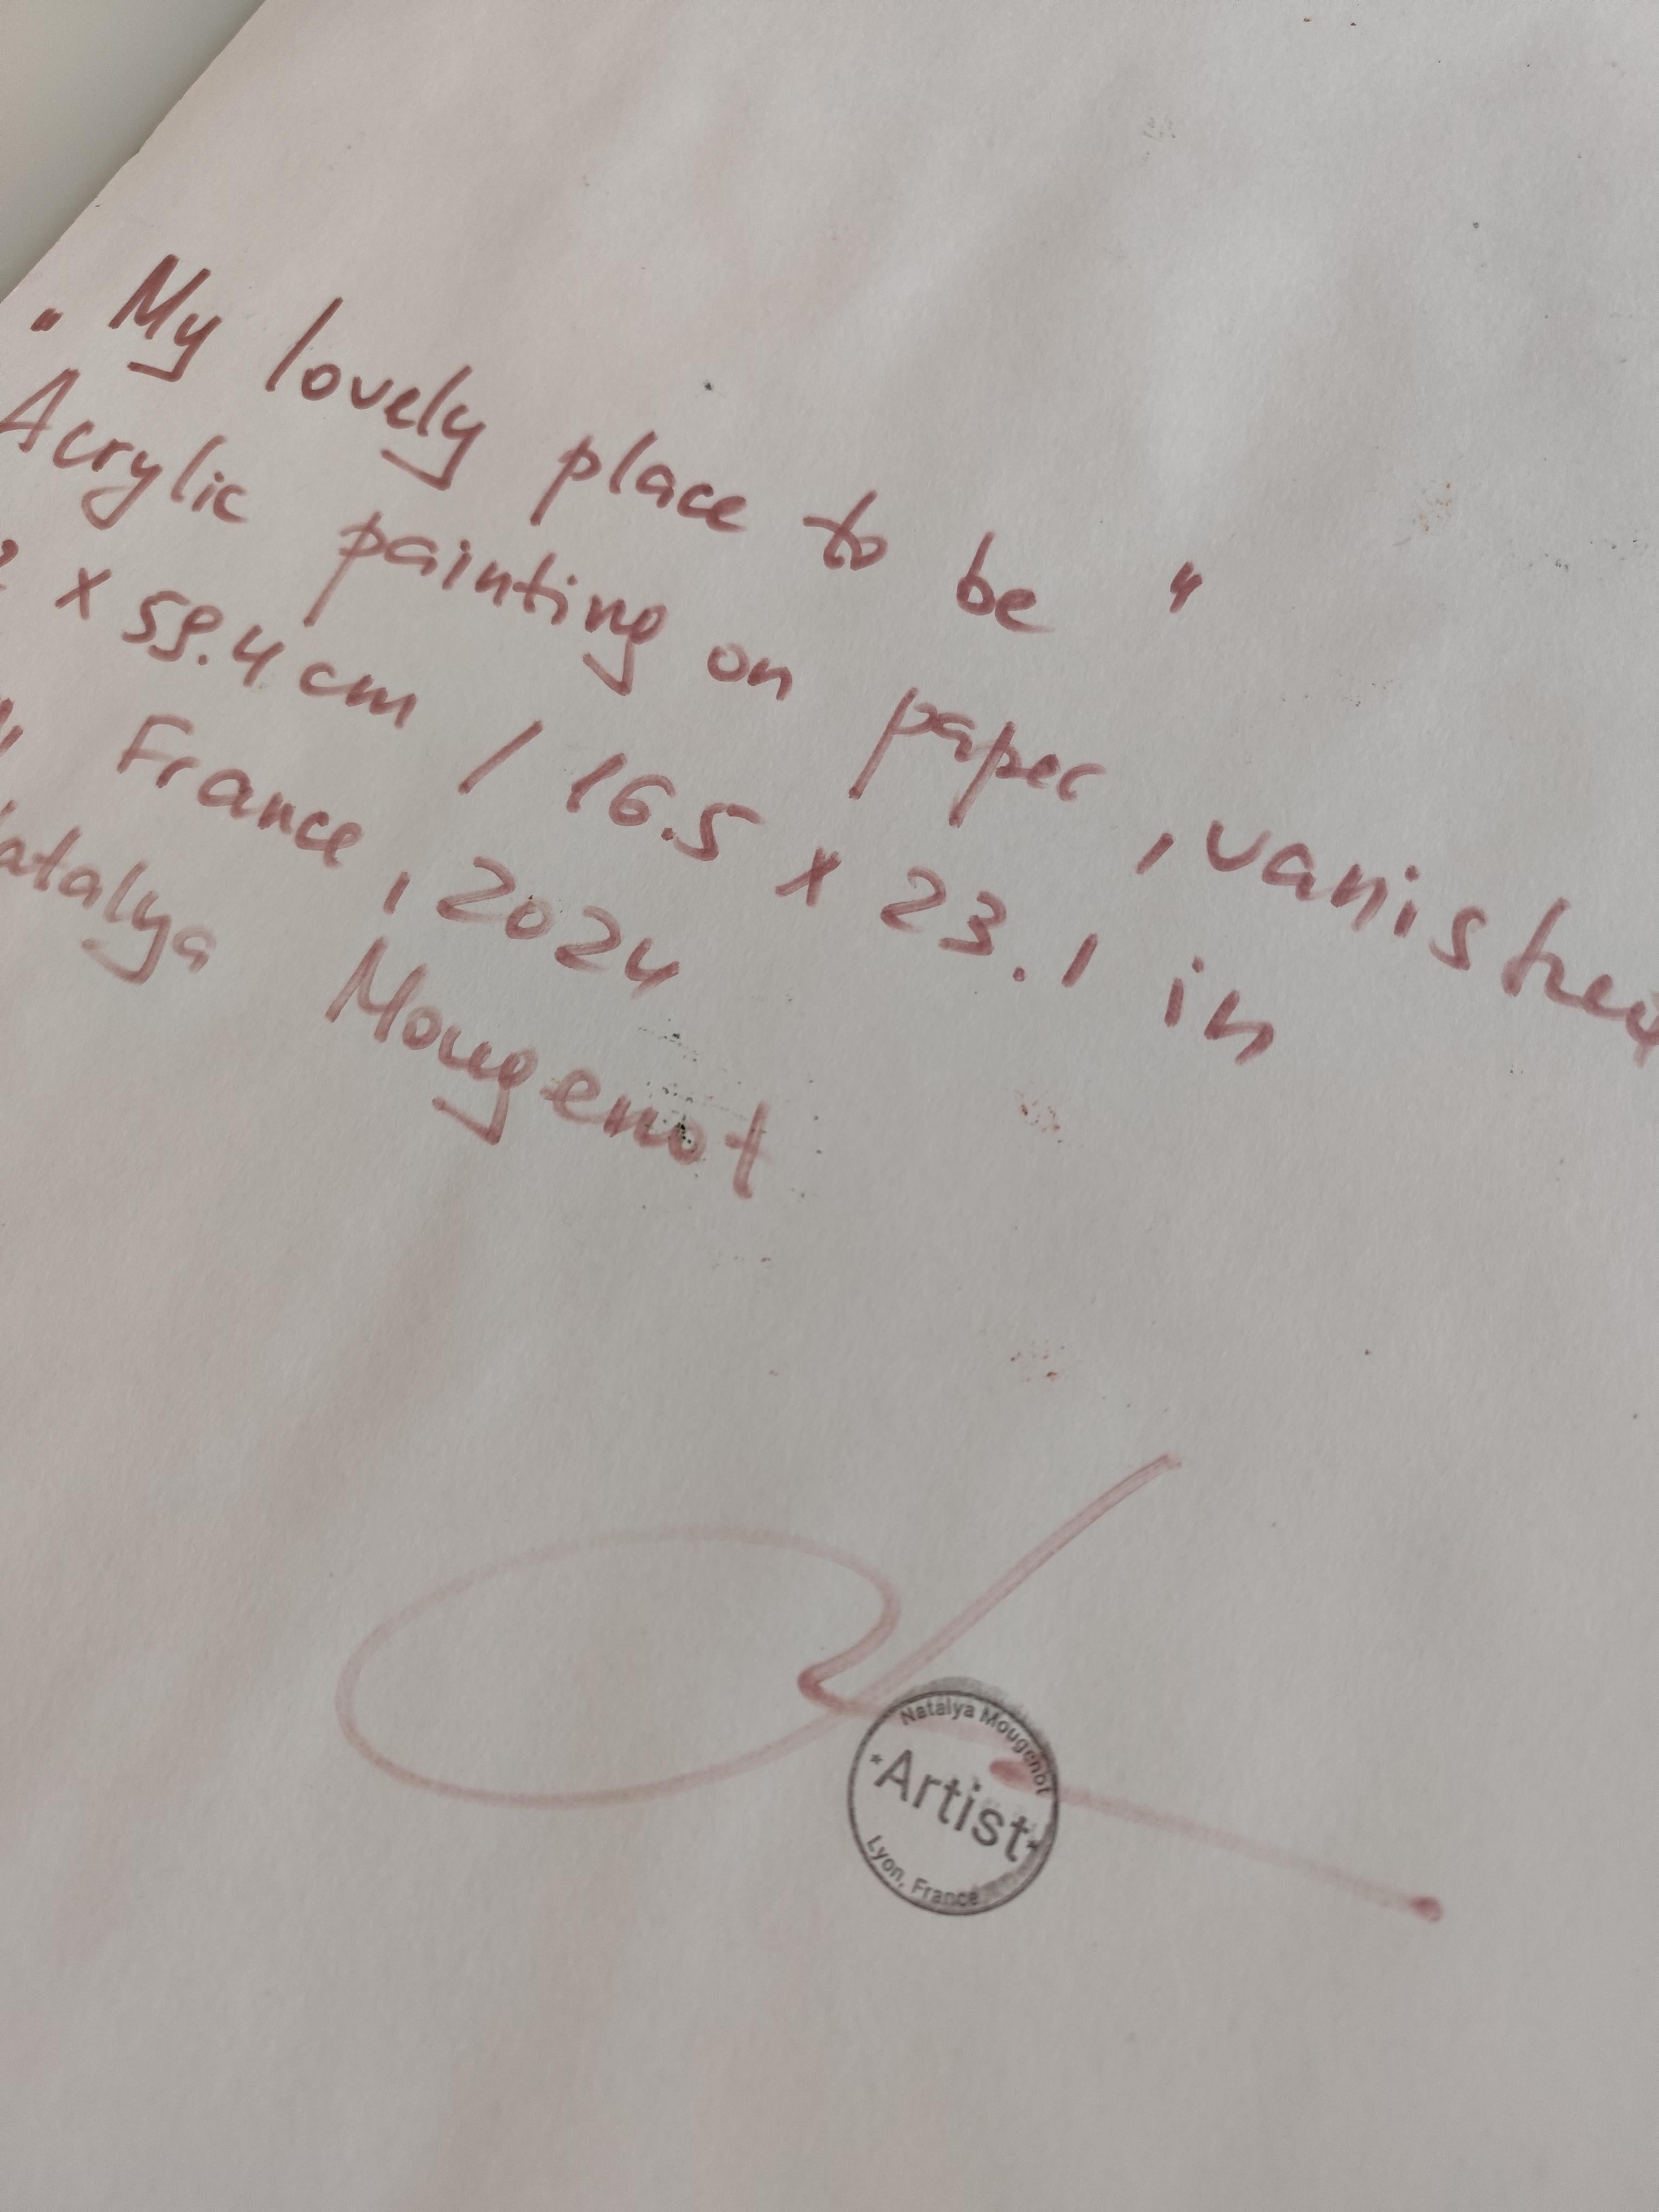 "My lovely place to be"
Acrylic painting on paper, vanished
2 x 59.4 cm / 16.5 x 23.1 in
France, 2024
atalya Mougenot
Natalya Mougenot
*Artist*
Lyon, France